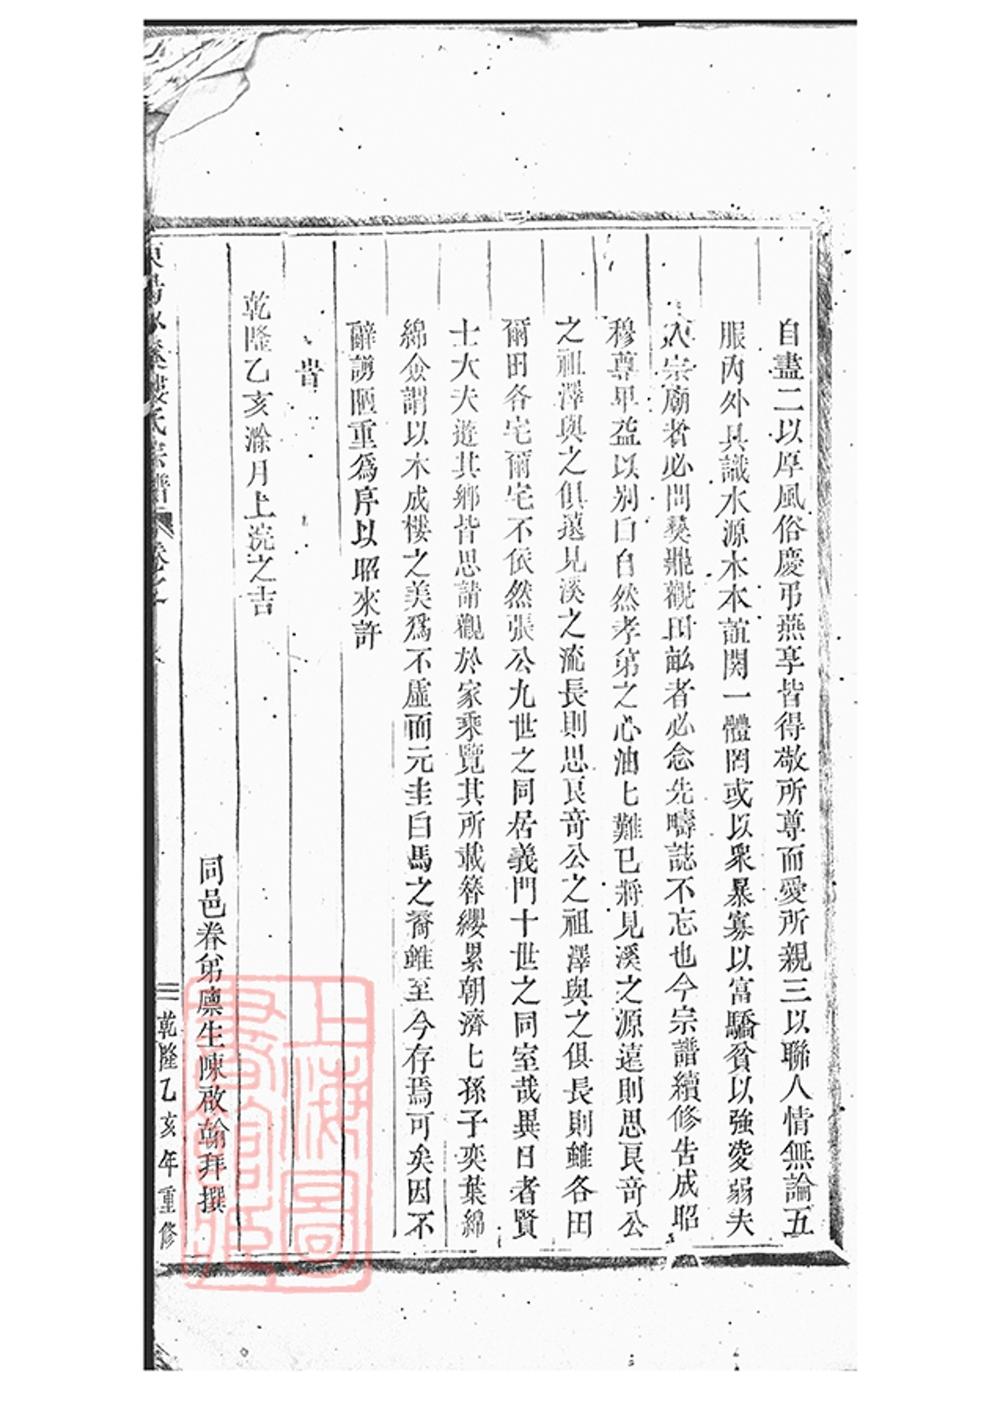 自盡二以厚風俗慶弔燕享皆得敬所尊而愛所親三以聯人情無論五
服內外具識水源木本誼関一體罔或以衆暴寡以富驕貧以強凌弱夫
入宗廟者必問彝鼎觀田畝者必念先疇誌不忘也今宗譜續修告成昭
穆尊卑益以別白自然孝弟之心油匕難已將見溪之源遠則思良奇公
之祖澤與之俱遠見溪之流長則思良奇公之祖澤與之俱長則雖各田
爾田各宅爾宅不依然張公九世之同居義門十世之同室哉異日者賢
士大夫遊其鄉皆思請觀於家乘覽其所載簪纓累朝濟匕孫子奕葉綿
綿僉謂以木成樓之美為不虛而元圭白馬之裔雖至今存焉可矣因不
辭謭陋重為序以昭來許
旹
乾隆乙亥滁月上浣之吉
同邑眷弟廪生陳啟翰拜撰
氏宗譜 卷之
三 乾隆乙亥年重修
上海圖書館藏